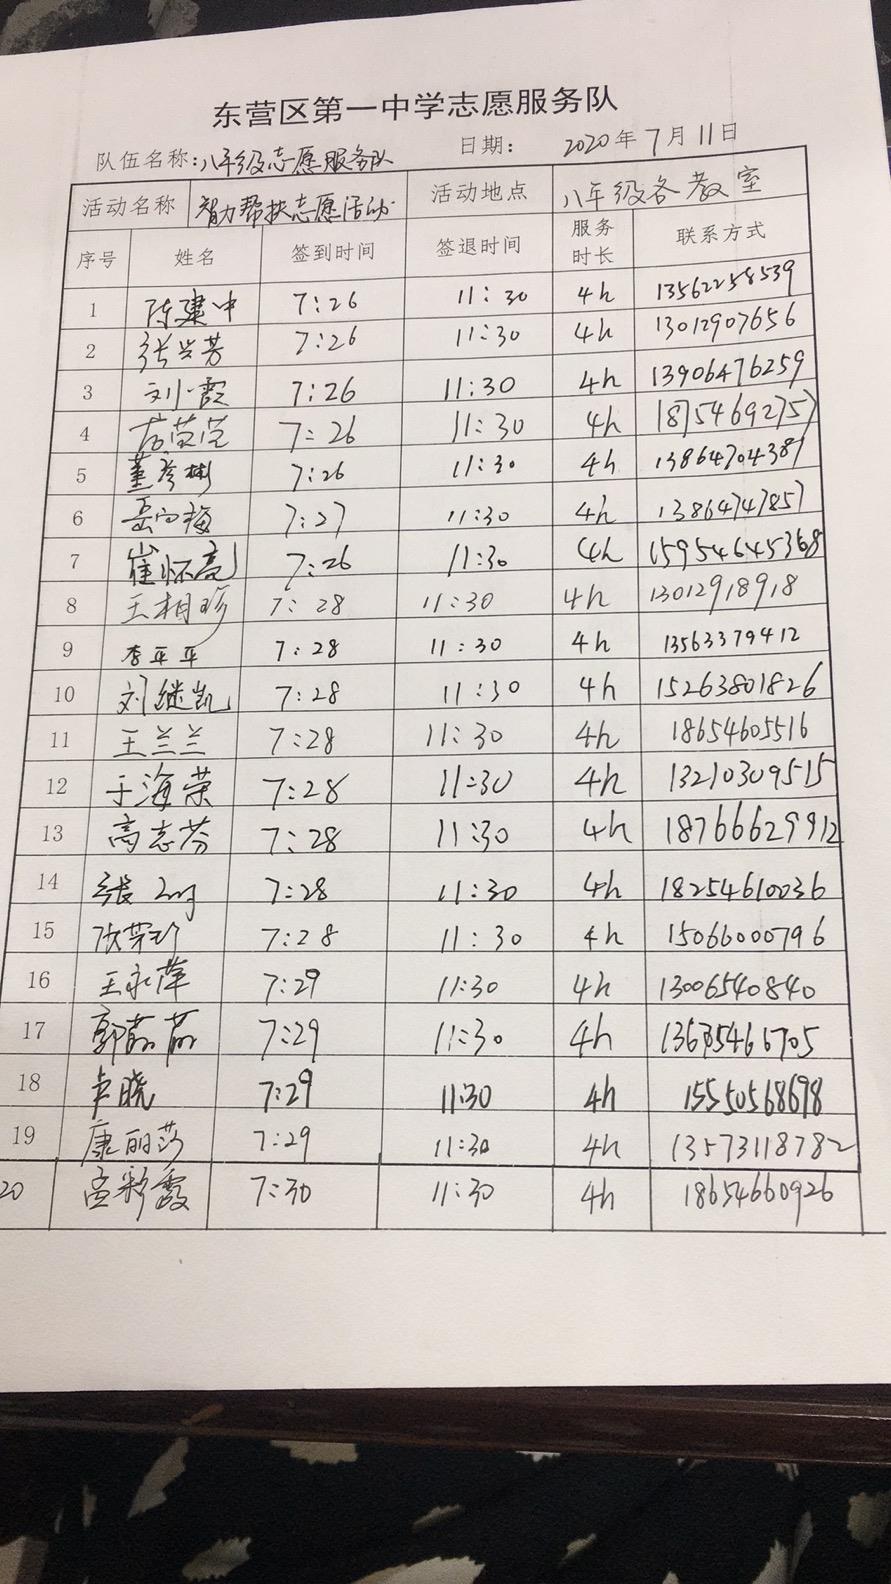 东营区第一中学志愿服务队
队伍名称:八年级志愿服务队 日期: 2020年7月11日
活动名称 智力帮扶志愿活动 活动地点 八年级各教室
序号 姓名 签到时间 签退时间 服务时长 联系方式
1 陈建中 7:26 11:30 4h 13562258539
2 张兰芳 7:26 11:30 4h 13012907656
3 刘小霞 7:26 11:30 4h 13906476259
4 7:26 11:30 4h 18754692757
5 董彦彬 7:26 11:30 4h 13864704387
6 岳向梅 7:27 11:30 4h 13864747857
7 崔怀亮 7:26 11:30 4h 15954645368
8 王相珍 7:28 11:30 4h 13012918918
9 李平平 7:28 11:30 4h 13563379412
10 刘继凯 7:28 11:30 4h 15263801826
11 王兰兰 7:28 11:30 4h 18654605516
12 于海荣 7:28 11:30 4h 13210309515
13 高志芬 7:28 11:30 4h 18766629912
14 张 7:28 11:30 4h 18254610036
15 7:28 11:30 4h 15066000796
16 王永萍 7:29 11:30 4h 13006540840
17 郭 7:29 11:30 4h
18 卓晓 7:29 11:30 4h 15550568698
19 康丽莎 7:29 11:30 4h 13573118782
20 孟彩霞 7:30 11:30 4h 18654660926